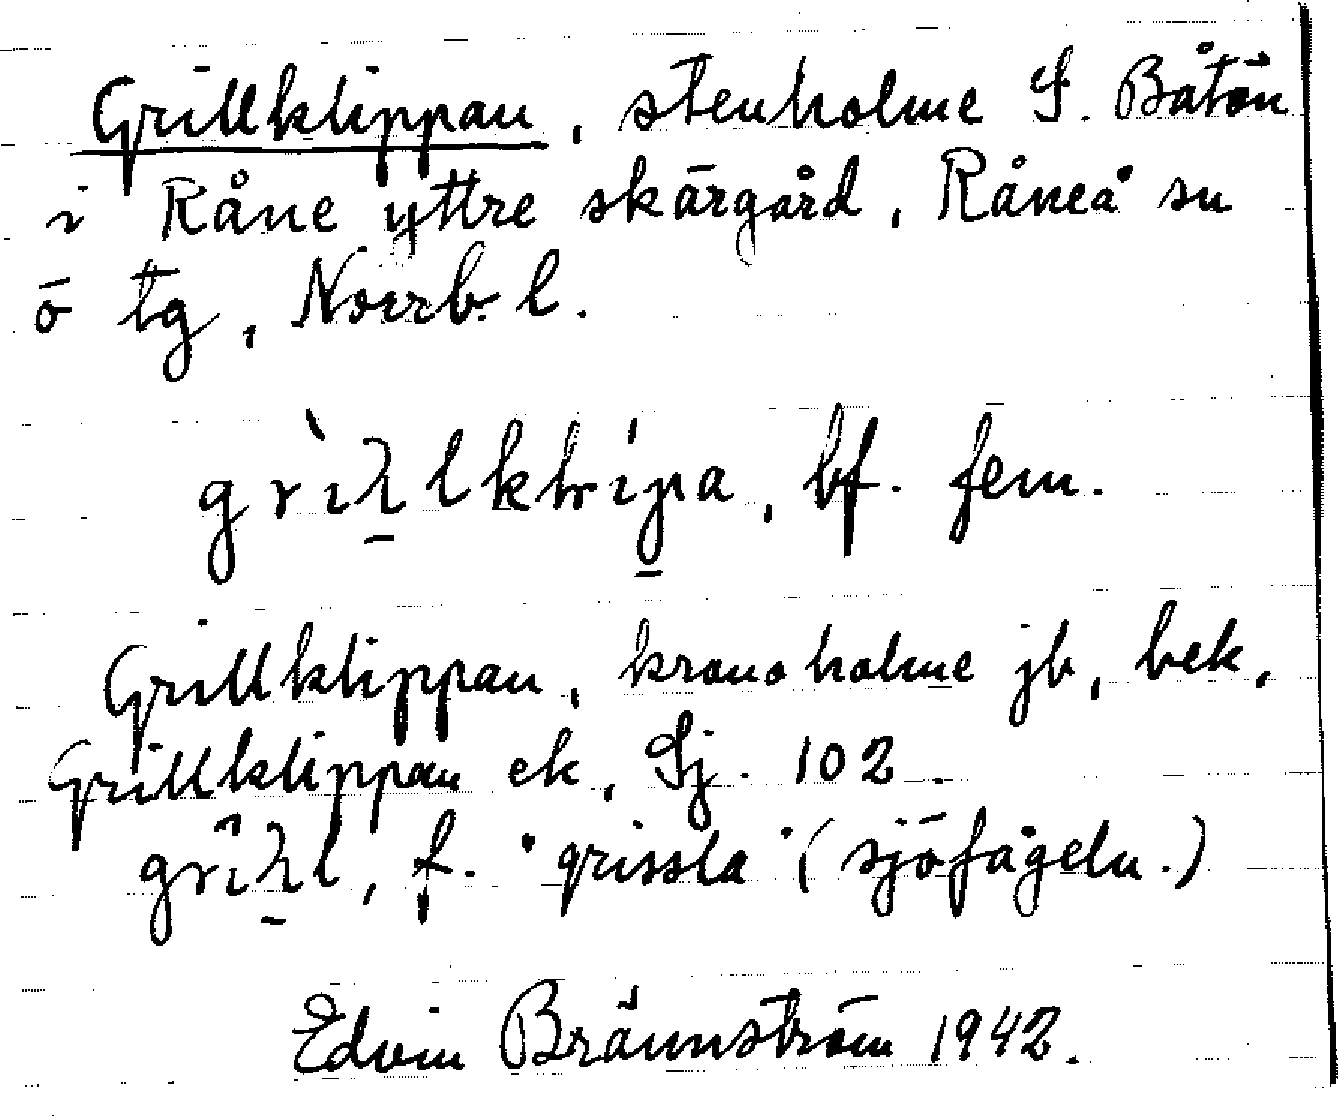 Grillklippan, stenholme S. Båtön
i Råne yttre skärgård, Råneå sn
ö tg, Norrb. l.
bf. fem.
Grillklippan, kronoholme jb, bek,
Grillklippan ek, Sj. 102.
f. "grissla" (sjöfågeln.)
Edvin Brännström 1942.